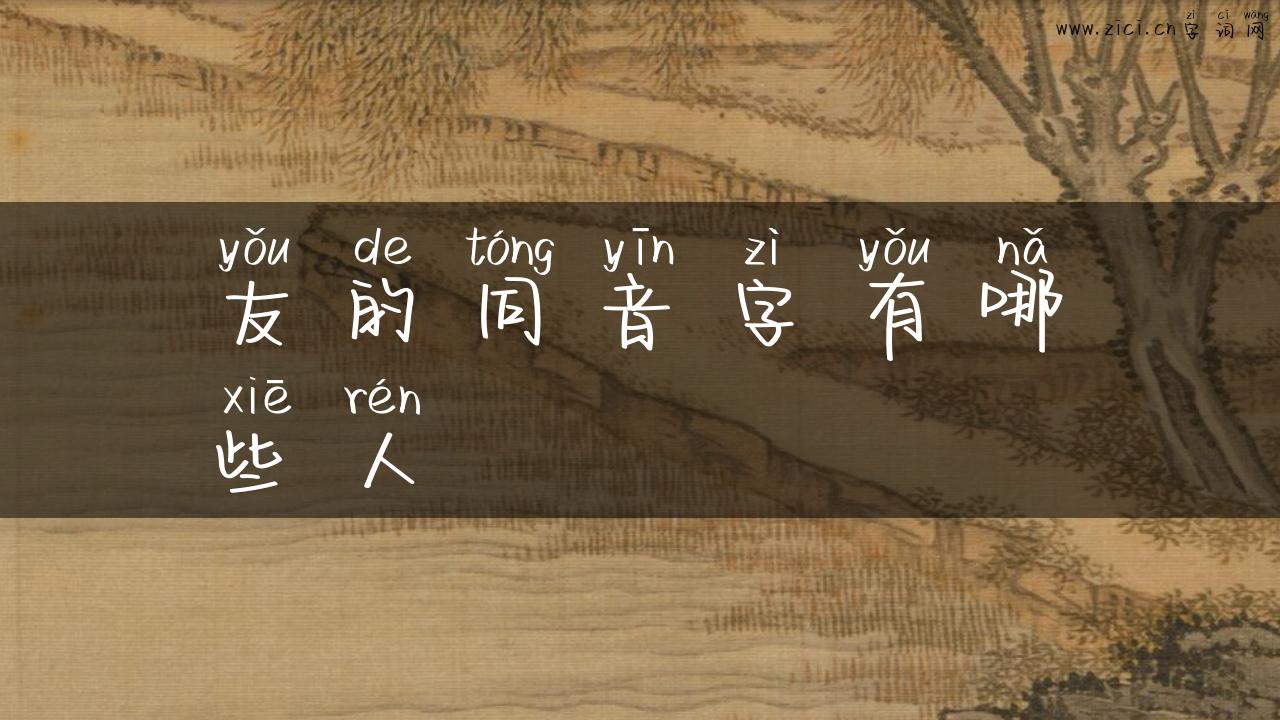 zì cí wǎng
www.zici.cn 字 词 网
yǒu de tóng yīn zì yǒu nǎ
友 的 同 音 字 有 哪
xiē rén
些 人